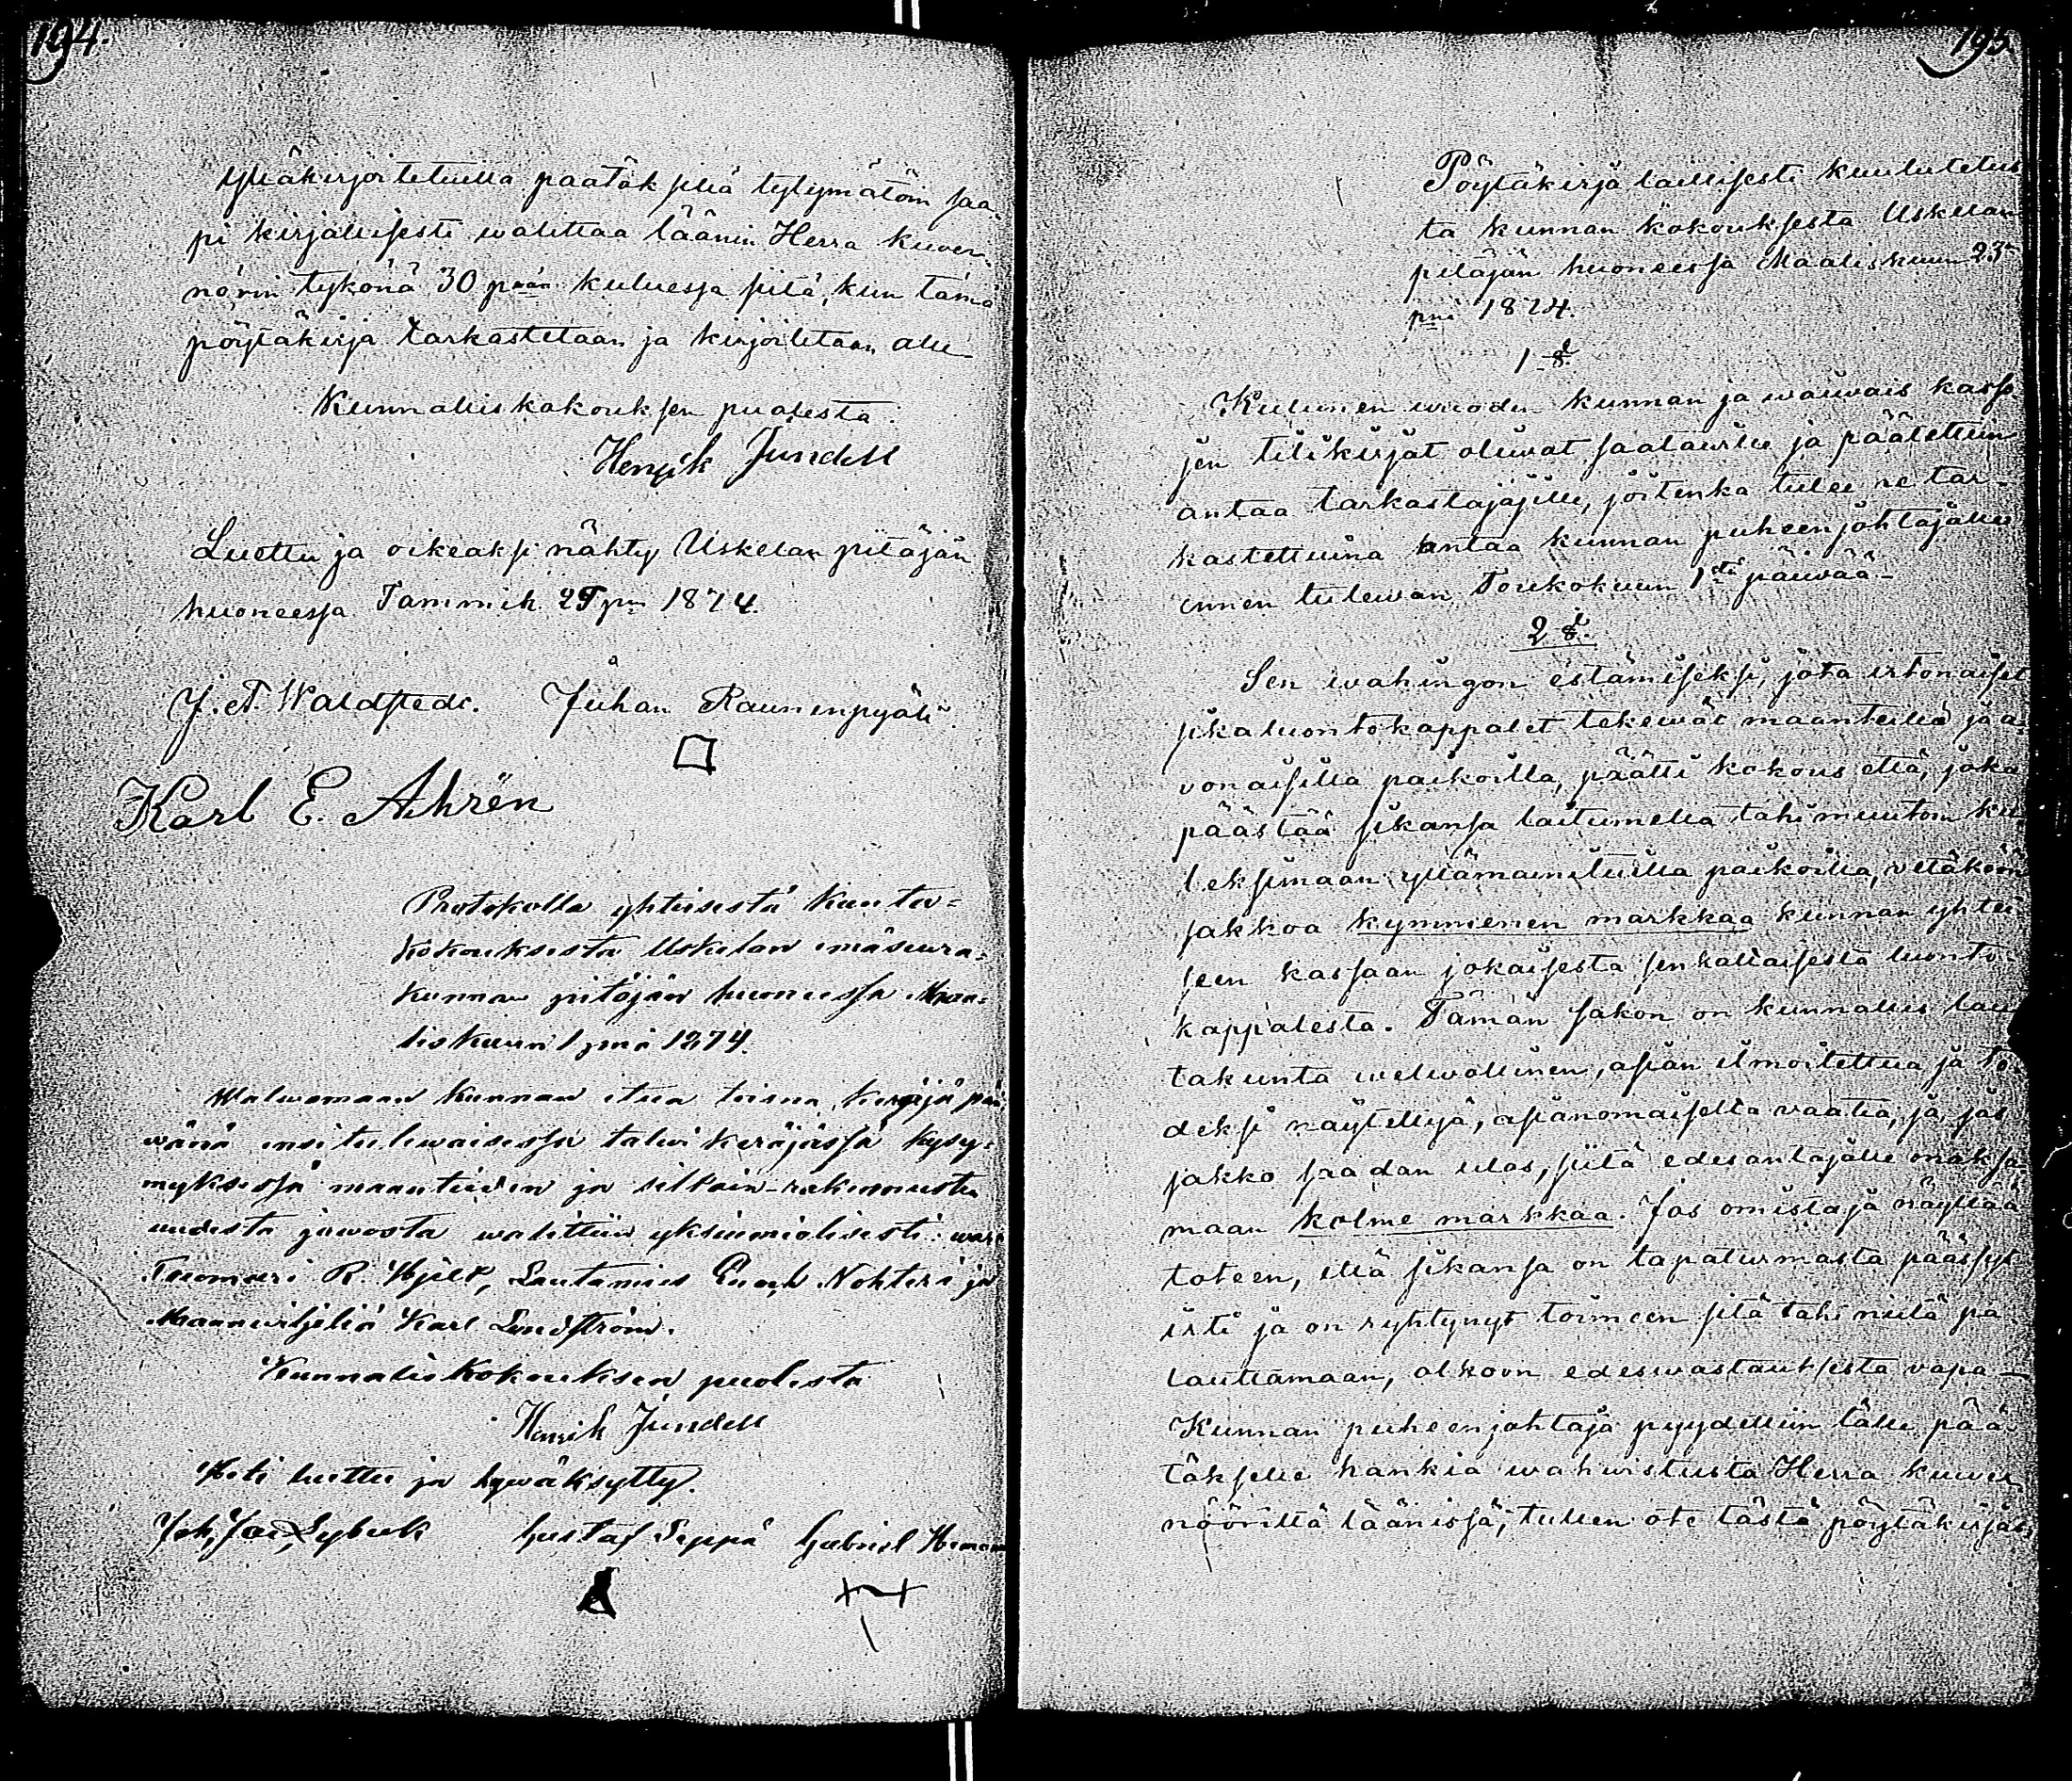 194.
Ylläkirjoitetulla päätöksellä tytymätöin saa-
pi kirjallisesti walittaa läänin Herra kuver-
nörin tykönä 30 pään kuluessa siitä, kun tämä
pöytäkirja tarkastetaan ja kirjoitetaan alle.
Kunnalliskokouksen puolesta
Henrik Jundell
Luettu ja oikeaksi nähty Uskelan pitäjän
huoneessa Tammik. 25 pnä 1874.
J. A. Waldstedt. Juhan Raunenpyöli
Karl E. Ahrën
Protokolla yhteisestä kunta-
kokouksesta Uskelan emäseura-
kunnan pitäjän huoneessa Maa-
liskuun 1 pnä 1874.
Walwomaan kunnan etua toisna käräjä päi-
wänä ensi tulewaisessa talwi keräjässä kysy-
myksessä maanteiden ja siltain-rakennusten
uudesta jawosta walittiin yksimielisesti: wara-
Tuomari R. Hjelt, Lautamies Enoch Nohteri ja
Maanwiljeliä Karl Lindström.
Kunnalliskokouksen puolesta
Henrik Jundell
Heti luettu ja hywäksytty.
Joh. Jac. Sybeck Gustaf Seppä Gabriel
195.
Pöytäkirja laillisesti kuulutetus-
ta kunnan kokouksesta Uskelan
pitäjän huoneessa Maaliskuun 23
pnä 1874.
1 §
Kuluneen wuoden kunnan ja waiwais kasso-
jen tilikirjat oliwat saatawilla ja päätettiin
antaa tarkastajille, joitenka tulee ne tar-
kastettuina antaa kunnan puheenjohtajalle
ennen tulewan Toukokuun 1stä päiwää-
2 §.
Sen wahingon estämiseksi, jota irtonaiset
sikaluontokappalet tekewät maanteillä ja a-
vonaisilla paikoilla, päätti kokous että, joka
päästää sikansa laitumella tahi muutoin ku-
leksimaan yllämainituilla paikoilla, vetäköön
sakkoa kymmenen markkaa kunnan yhtei-
seen kassaan jokaisesta senkaltaisesta luonto-
kappalesta. Tämän sakon on kunnallis lau-
takunta welwollinen, asian ilmoitettua ja to-
deksi näytettyä, asianomaiselta vaatia, ja jos
sakko saadan ulos, siitä edesantajalle maksa-
maan kolme markkaa. Jos omistaja näyttää
toteen, että sikansa on tapaturmasta päässyt
irti ja on ryhtynyt toimeen sitä tahi niitä pa-
lauttamaan, olkoon edeswastauksesta vapa-
Kunnan puheenjohtaja pyydettiin tälle pää-
täkselle hankia wahwistusta Herra kuver-
nööriltä läänissä, tullen ote tästä pöytäkirjas-